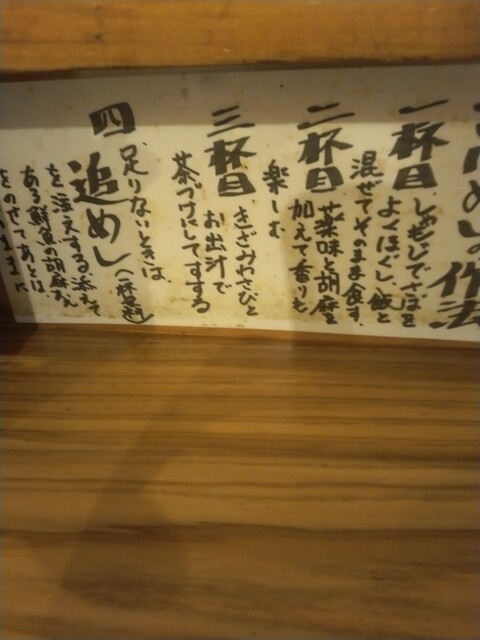 めしの作法
一杯目
しゃもじでさばを
よくほぐし、飯と
混ぜてそのまま食す。
二杯目
薬味と胡麻を
加えて香りも
楽しむ
三杯目
きざみわさびと
お出汁で
茶づけにしてすする
四
足りないときは、
追めし
を注文する。添えて
ある鮮魚の胡麻
をのせてあとは